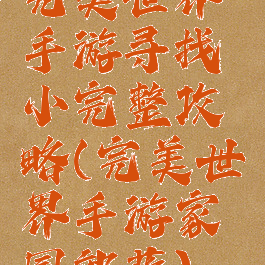 完美世界
手游寻找
小完整攻
略(完美世
界手游家